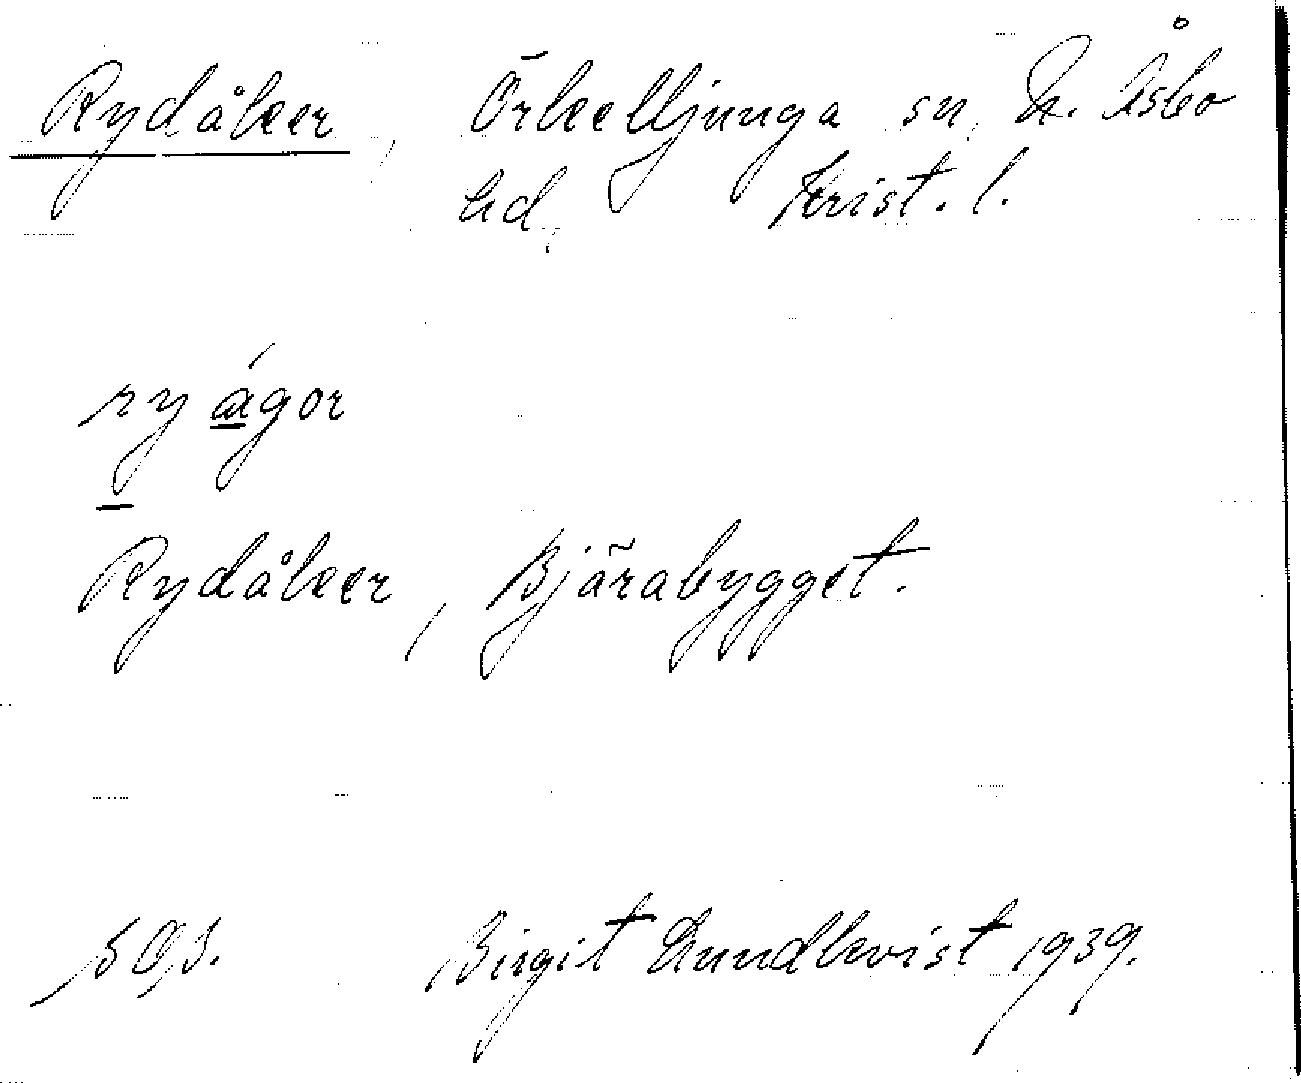 Rydåker, Örkelljunga sn, N. Åsbo
hd, Krist. l.
Rydåker, Bjärabygget.
Birgit Lundkvist 1939.